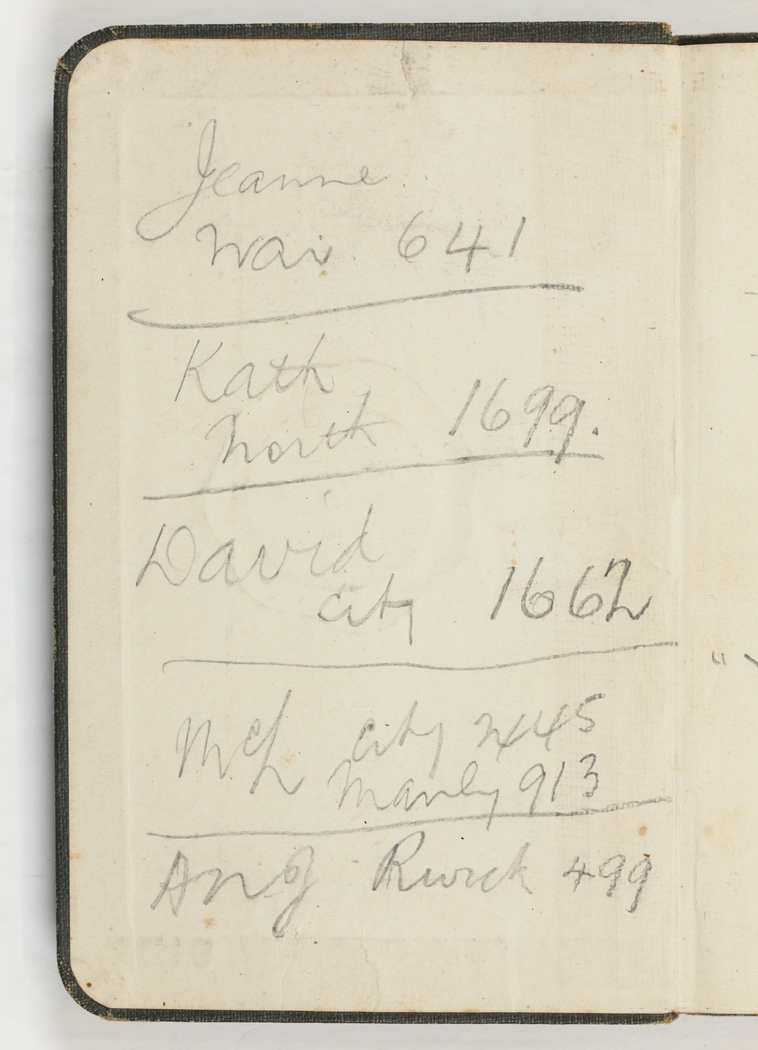 Jeanne
Wav 641
Kath
North 1699.
David
City 1662
McL City 2445
Manly 913
Ang Rwick 499
"